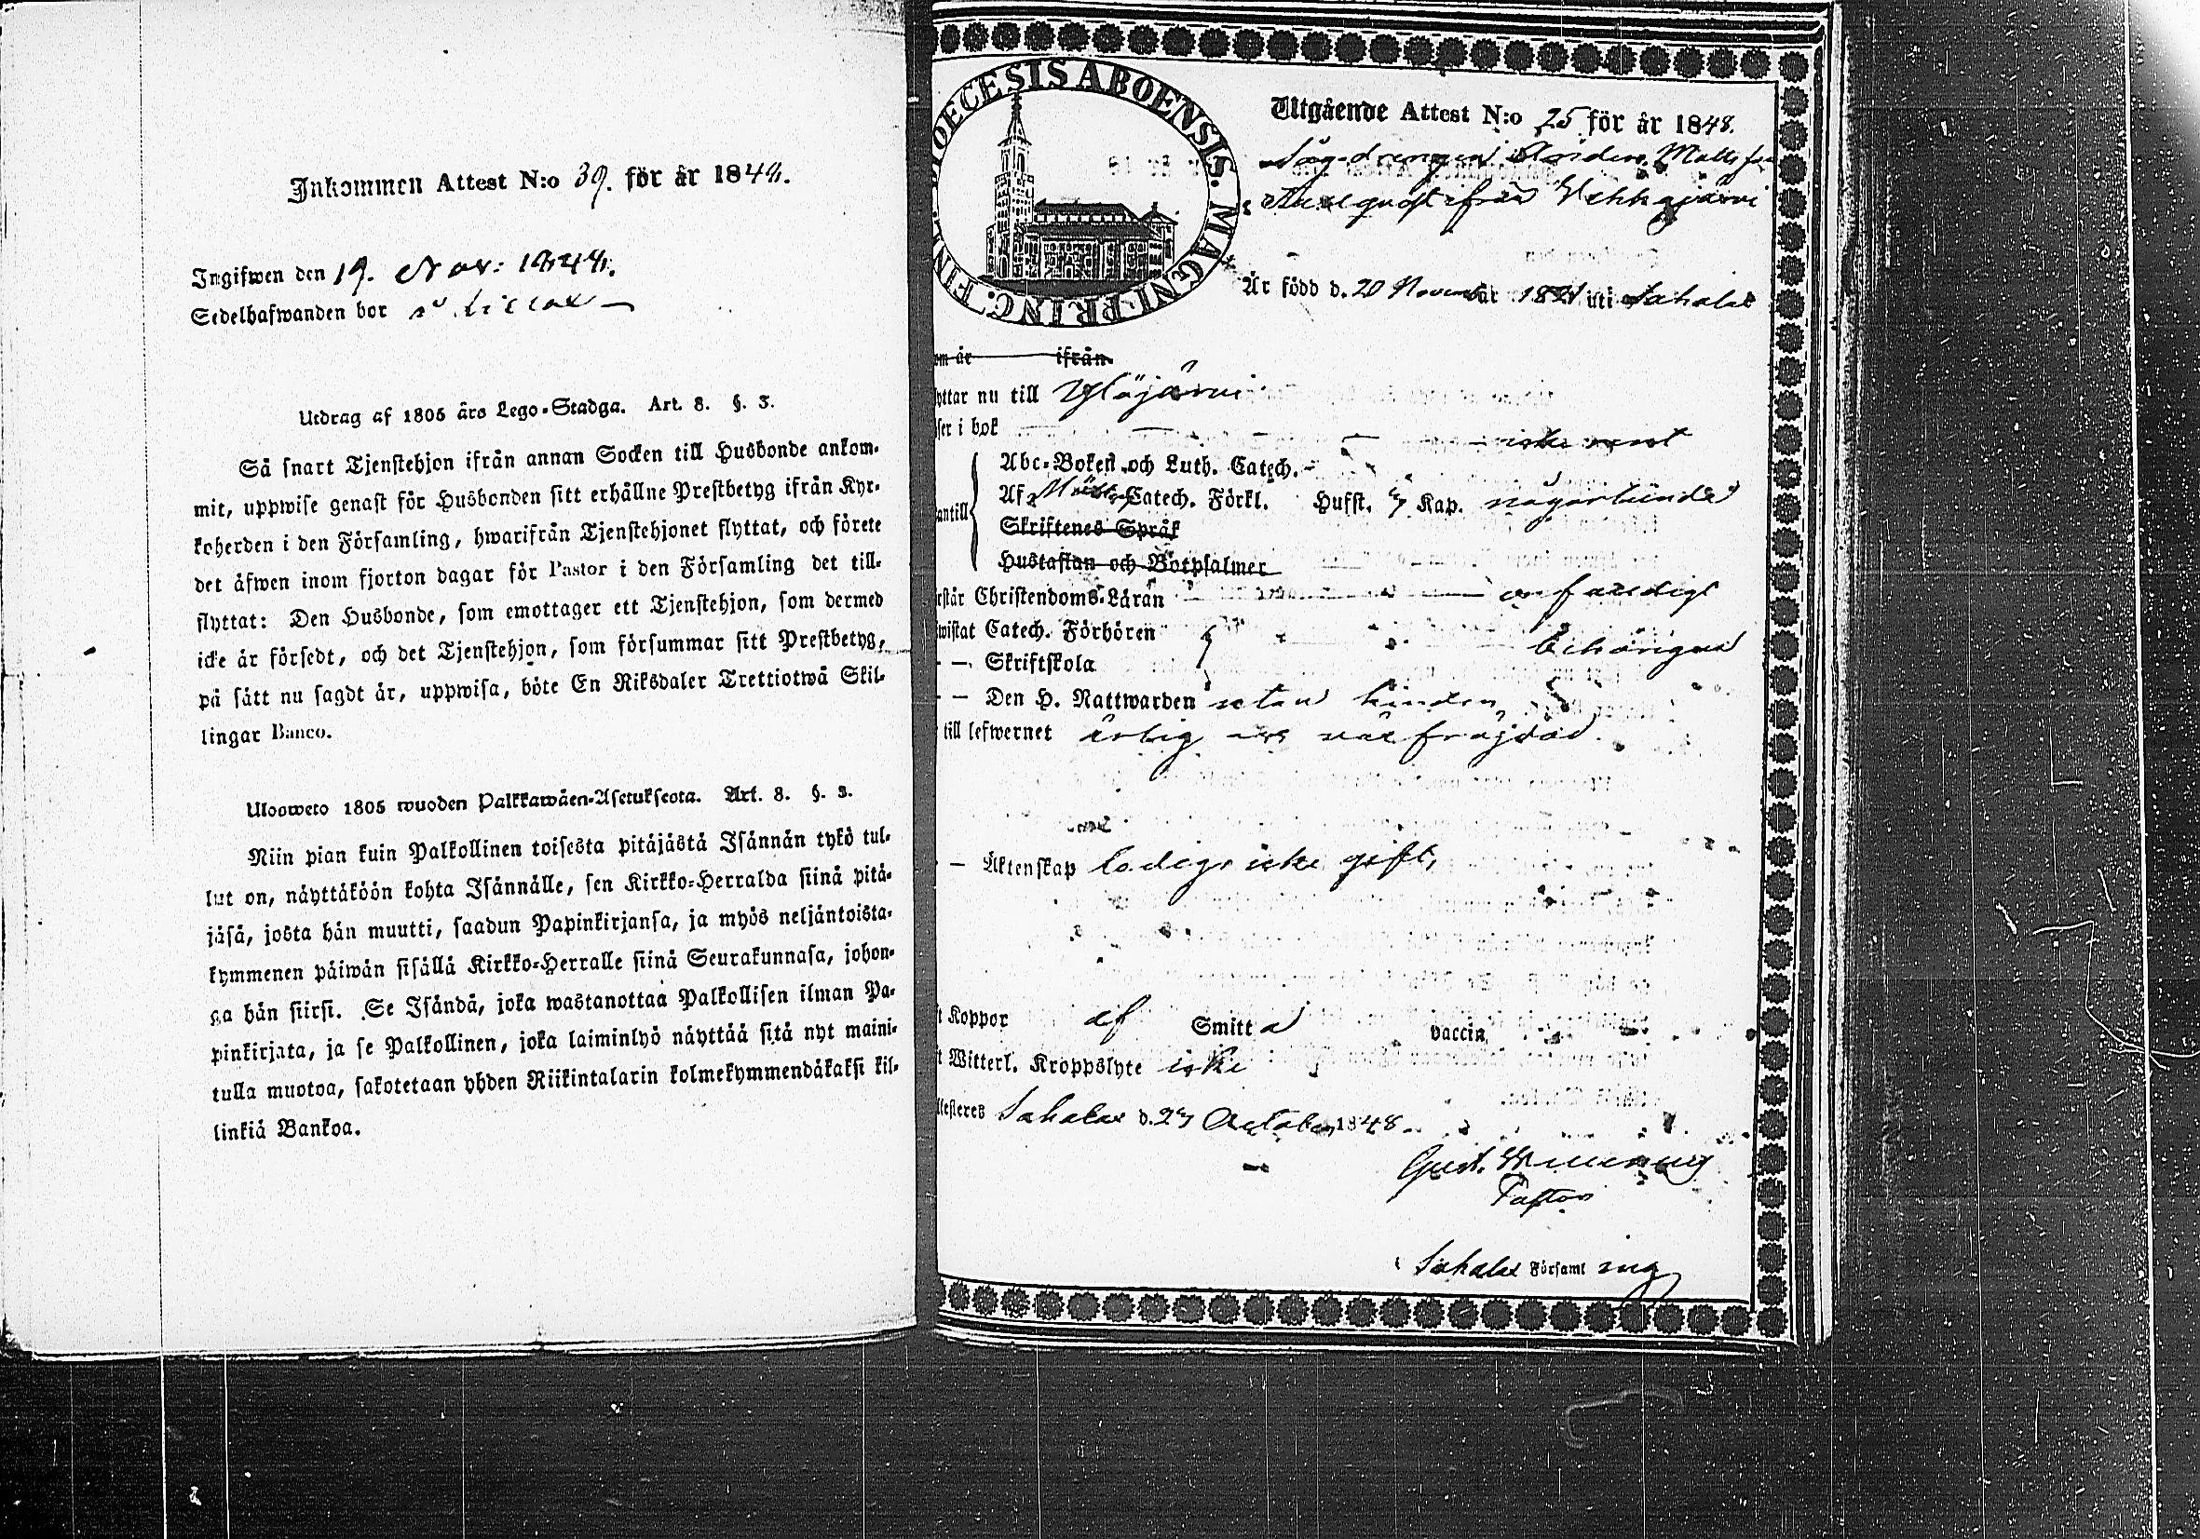 Inkommen Attest N:o 39. för år 1848.
Ingifwen den 19. Nov: 1848.
Sedelhafwanden bor
Utdrag af 1805 års Lego-Stadga. Art. 8. §. 3.
Så snart Tjenstehjon ifrån annan Socken till Husbonde ankom-
mit, uppwise genast för Husbonden sitt erhållne Prestbetyg ifrån Kyr-
koherden i den Församling, hwarifrån Tjenstehjonet flyttat, och förete
det äfwen inom fjorton dagar för Pastor i den Församling det till-
flyttat: Den Husbonde, som emottager ett Tjenstehjon, som dermed
icke är försedt, och det Tjenstehjon, som försummar sitt Prestbetyg,
på sätt nu sagdt är, uppwisa, böte En Riksdaler Trettiotwå Skil-
lingar Banco.
Ulosweto 1805 wuoden Palkkawäen-Asetuksesta. Art. 8. §. 3.
Niin pian kuin Palkollinen toisesta pitäjästä Isännän tykö tul-
lut on, näyttäköön kohta Isännälle, sen Kirkko-Herralda siinä pitä-
jäsä, josta hän muutti, saadun Papinkirjansa, ja myös neljäntoista-
kymmenen päiwän sisällä Kirkko-Herralle siinä Seurakunnasa, johon-
ga hän siirsi. Se Isändä, joka wastanottaa Palkollisen ilman Pa-
pinkirjata, ja se Palkollinen, joka laiminlyö näyttää sitä nyt maini-
tulla muotoa, sakotetaan yhden Riikintalarin kolmekymmendäkaksi kil-
linkiä Bankoa.
DIOECESIS ABOENSIS. MAGNI. PRINC. FINL.
Utgående Attest N:o 25 för år 1848.
Matts son
ifrån Vehkajärvi
Är född d. 20 November 1821 uti Sahalax
om år ifrån
yttar nu till Ylöjärvi
ser i bok icke
Abc-Boken och Luth. Catech.
Af Catech. Förkl. Hufst. Kap. någorlunda
antill
Skriftenes Språk
Hustaflan och Botpsalmer
rstår Christendoms-Läran enfaldigt
wistat Catech. Förhören behörigen
— — Skriftskola
— — Den H. Nattwarden utan hinder,
till lefwernet ärlig och väl frejdad.
— Äktenskap ledig icke gift,
t Koppor af Smitt a vaccin
t Witterl. Kroppslyte icke
ttesteres Sahalax d. 27 October 1848.
Gust.
Pastor
Sahalax Församl ing